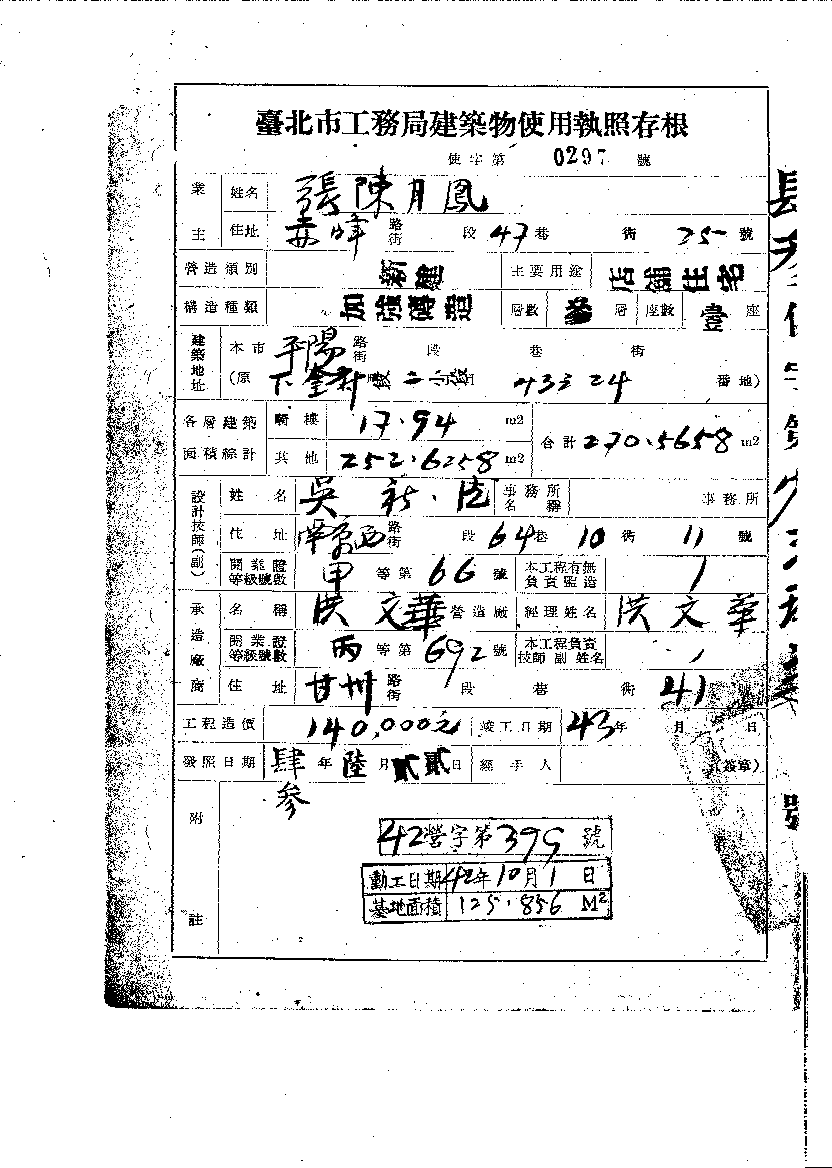 臺北市工務局建築物使用執照存根
使字第 0297 號
業主 姓名 張陳月鳳
住址 赤峰 路街 段 47 巷 衖 25 號
營造類別 新建 主要用途 店舖住宅
構造種類 加強磚造 層數 叁 層 座數 壹 座
建築地址 本市 平陽 路街 段 巷 衖
(原 下奎府 段 二小段 43 24 番地)
各層建築面積綜計 騎樓 17.94 m2 合計 270.5658 m2
其他 252.6258 m2
設計技師(副) 姓名 吳 事務所名稱 事務所
住址 南京西 路街 段 64 巷 10 衖 11 號
開業證等級號數 甲 等第 66 號 本工程有無負責監造 /
承造廠商 名稱 洪文華 營造廠 經理姓名 洪文華
開業證等級號數 丙 等第 692 號 本工程負責技師副姓名 /
住址 甘州 路街 段 巷 衖 41 號
工程造價 140,000元 竣工日期 43年 月 日
發照日期 肆參 年 陸 月 貳貳 日 經手人 (簽章)
附註
42營字第399號
動工日期 42年10月1日
基地面積 125.856 M²